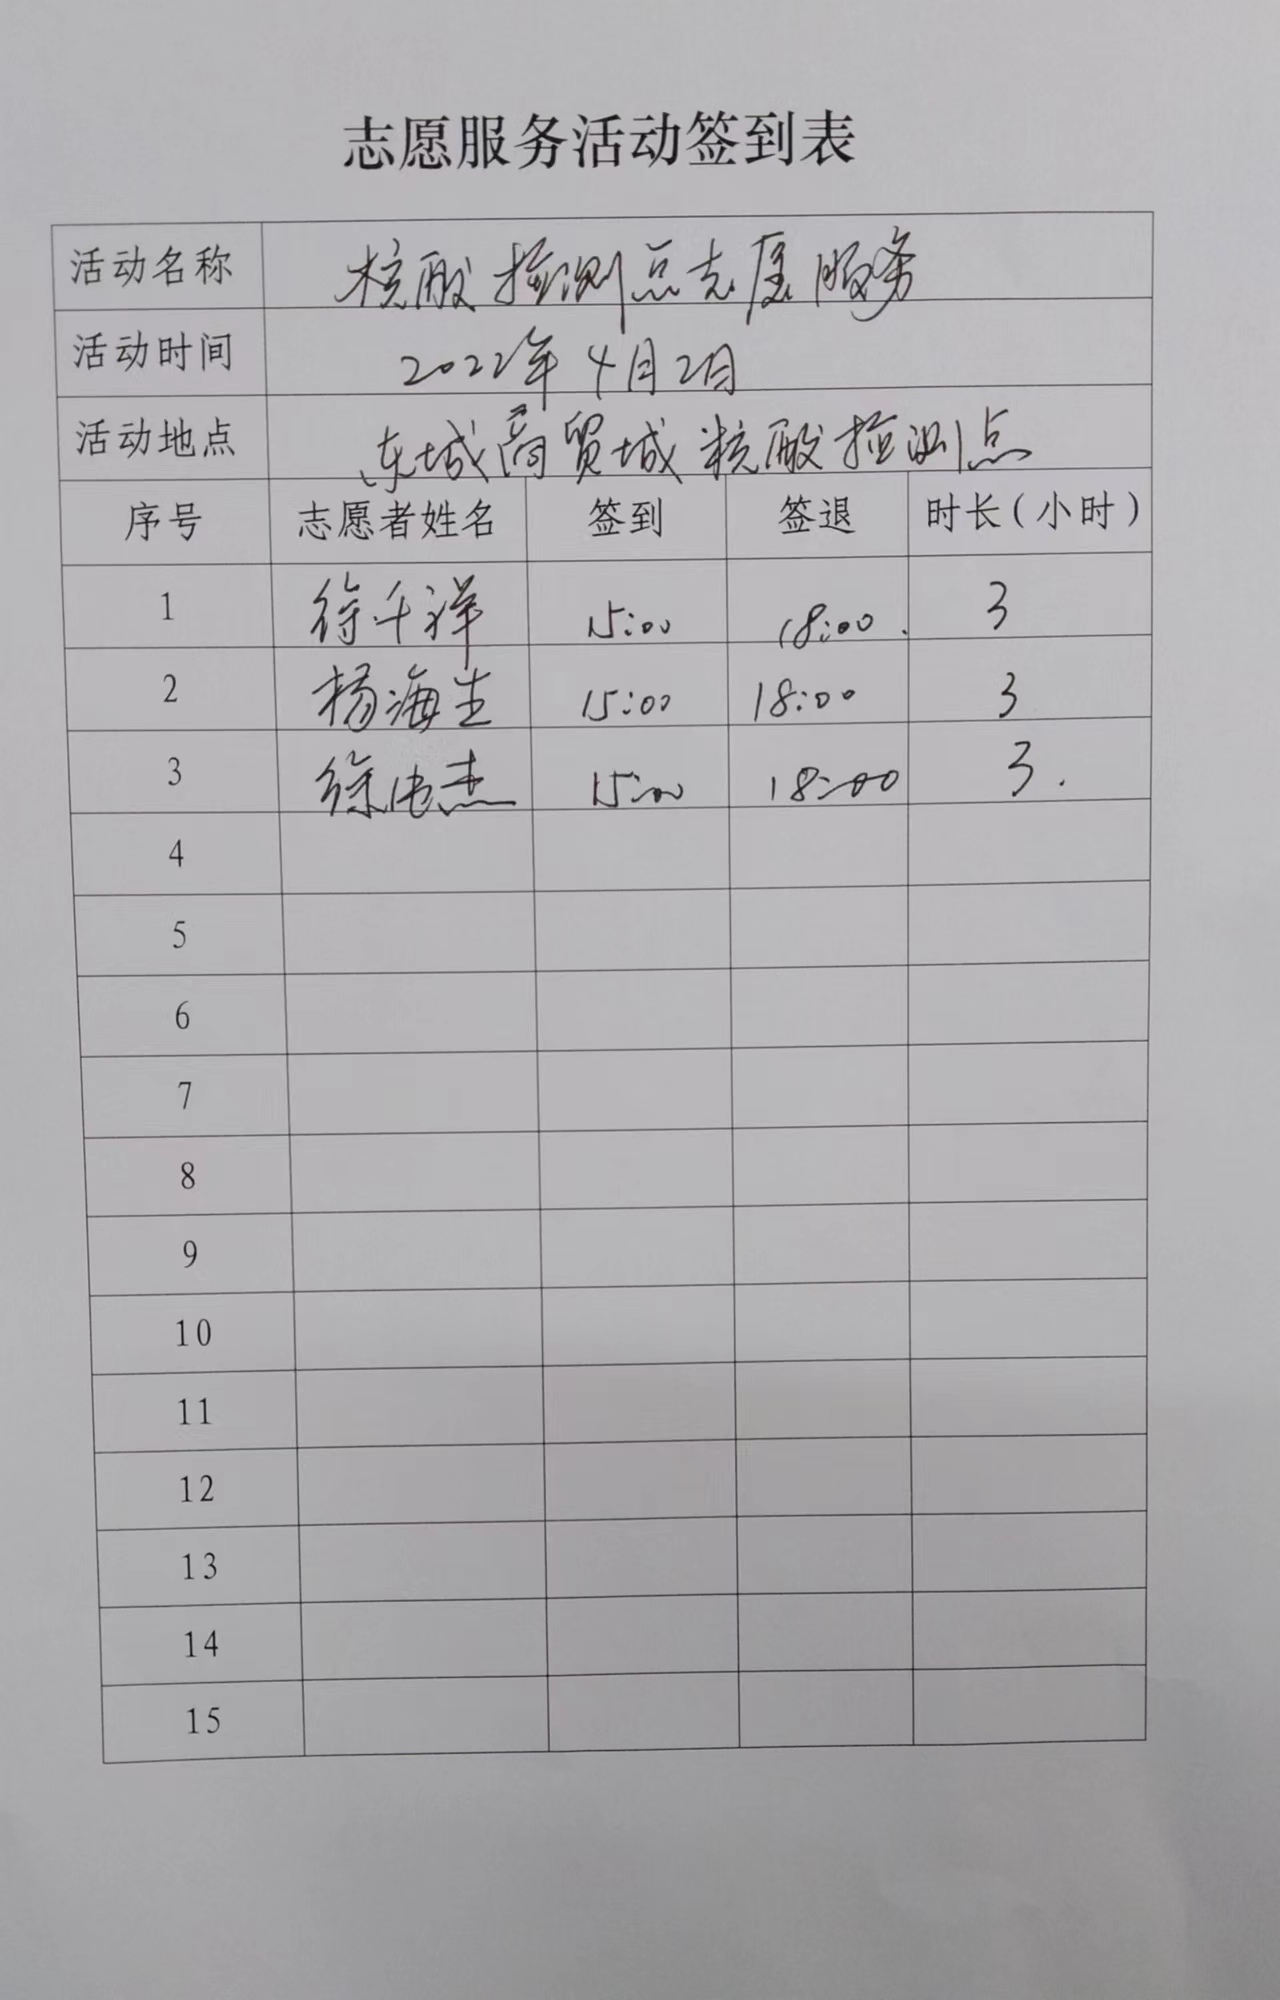 志愿服务活动签到表
活动名称 核酸检测点志愿服务
活动时间 2022年4月2日
活动地点 东城商贸城核酸检测点
序号 志愿者姓名 签到 签退 时长(小时)
1 徐千洋 15:00 18:00. 3
2 杨海生 15:00 18:00 3
3 徐杰 15:00 18:00 3.
4
5
6
7
8
9
10
11
12
13
14
15